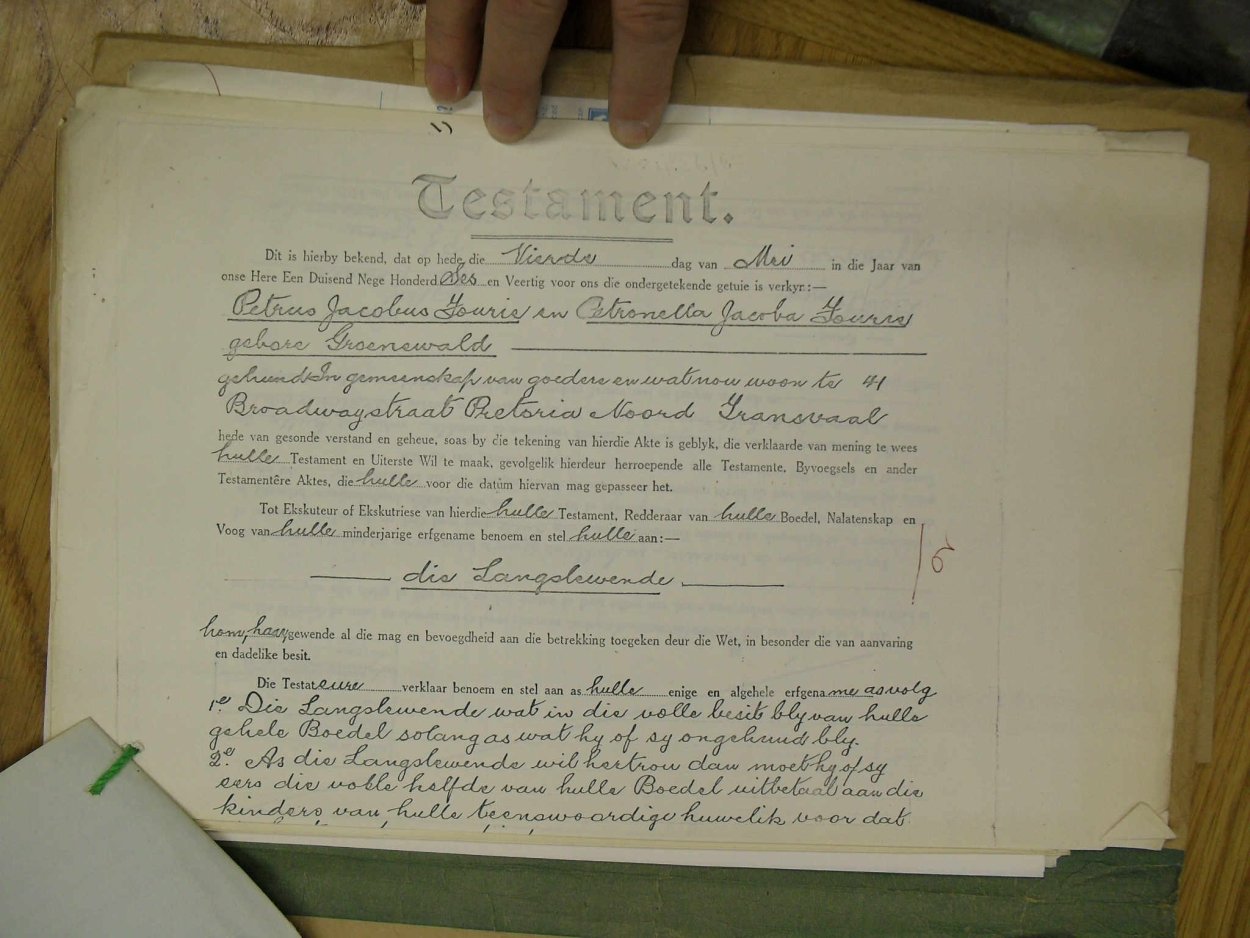 Testament.
Dit is hierby bekend, dat op hede die Vierde dag van Mei in die Jaar van
onse Here Een Duisend Nege Honderd Ses en Veertig voor ons die ondergetekende getuie is verkyr:—
Petrus Jacobus Fourie en Petronella Jacoba Fourie
gebore Groenewald
gehuud in gemeenskap van goedere en wat nou woon te 41
Broadwaystraat Pretoria Noord Transvaal
hede van gesonde verstand en geheue, soas by die tekening van hierdie Akte is geblyk, die verklaarde van mening te wees
hulle Testament en Uiterste Wil te maak, gevolgelik hierdeur herroepende alle Testamente, Byvoegsels en ander
Testamentêre Aktes, die hulle voor die datum hiervan mag gepasseer het.
Tot Ekskuteur of Ekskutriese van hierdie hulle Testament, Redderaar van hulle Boedel, Nalatenskap en
Voog van hulle minderjarige erfgename benoem en stel hulle aan:—
die Langslewende
hom, haar, gewende al die mag en bevoegdheid aan die betrekking toegeken deur die Wet, in besonder die van aanvaring
en dadelike besit.
Die Testateure verklaar benoem en stel aan as hulle enige en algehele erfgename asvolg
1e Die Langslewende wat in die volle besit bly van hulle
gehele Boedel solang as wat hy of sy ongehuud bly.
2e. As die Langslewende wil hertrou dan moet hy of sy
eers die volle helfde van hulle Boedel uitbetaal aan die
kinders van hulle teenswoordige huwelik voor dat